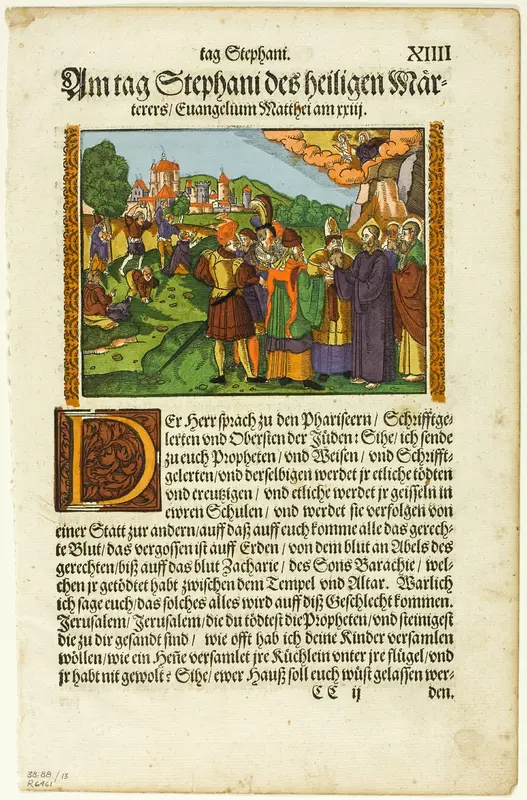 tag Stephani. XIIII
Am tag Stephani des heiligen Mår-
terers/ Euangelium Matthei am xxiij.
DEr Herr sprach zu den Phariseern/ Schrifftge-
lerten vnd Obersten der Jüden: Sihe/ ich sende
zu euch Propheten/ vnd Weisen/ vnd Schrifft-
gelerten/ vnd derselbigen werdet jr etliche tödten
vnd creutzigen/ vnd etliche werdet jr geisseln in
ewren Schulen/ vnd werdet sie verfolgen von
einer Statt zur andern/ auff daß auff euch komme alle das gerech-
te Blut/ das vergossen ist auff Erden/ von dem blut an Abels des
gerechten/ biß auff das blut Zacharie/ des Sons Barachie/ wel-
chen jr getödtet habt zwischen dem Tempel vnd Altar. Warlich
ich sage euch/ das solches alles wird auff diß Geschlecht kommen.
Jerusalem/ Jerusalem/ die du tödtest die Propheten/ vnd steinigest
die zu dir gesandt sind/ wie offt hab ich deine Kinder versamlen
wöllen/ wie ein Heñe versamlet jre Küchlein vnter jre flügel/ vnd
jr habt nit gewolt? Sihe/ ewer Hauß soll euch wüst gelassen wer-
CC ij den.
38.88/13
R6461